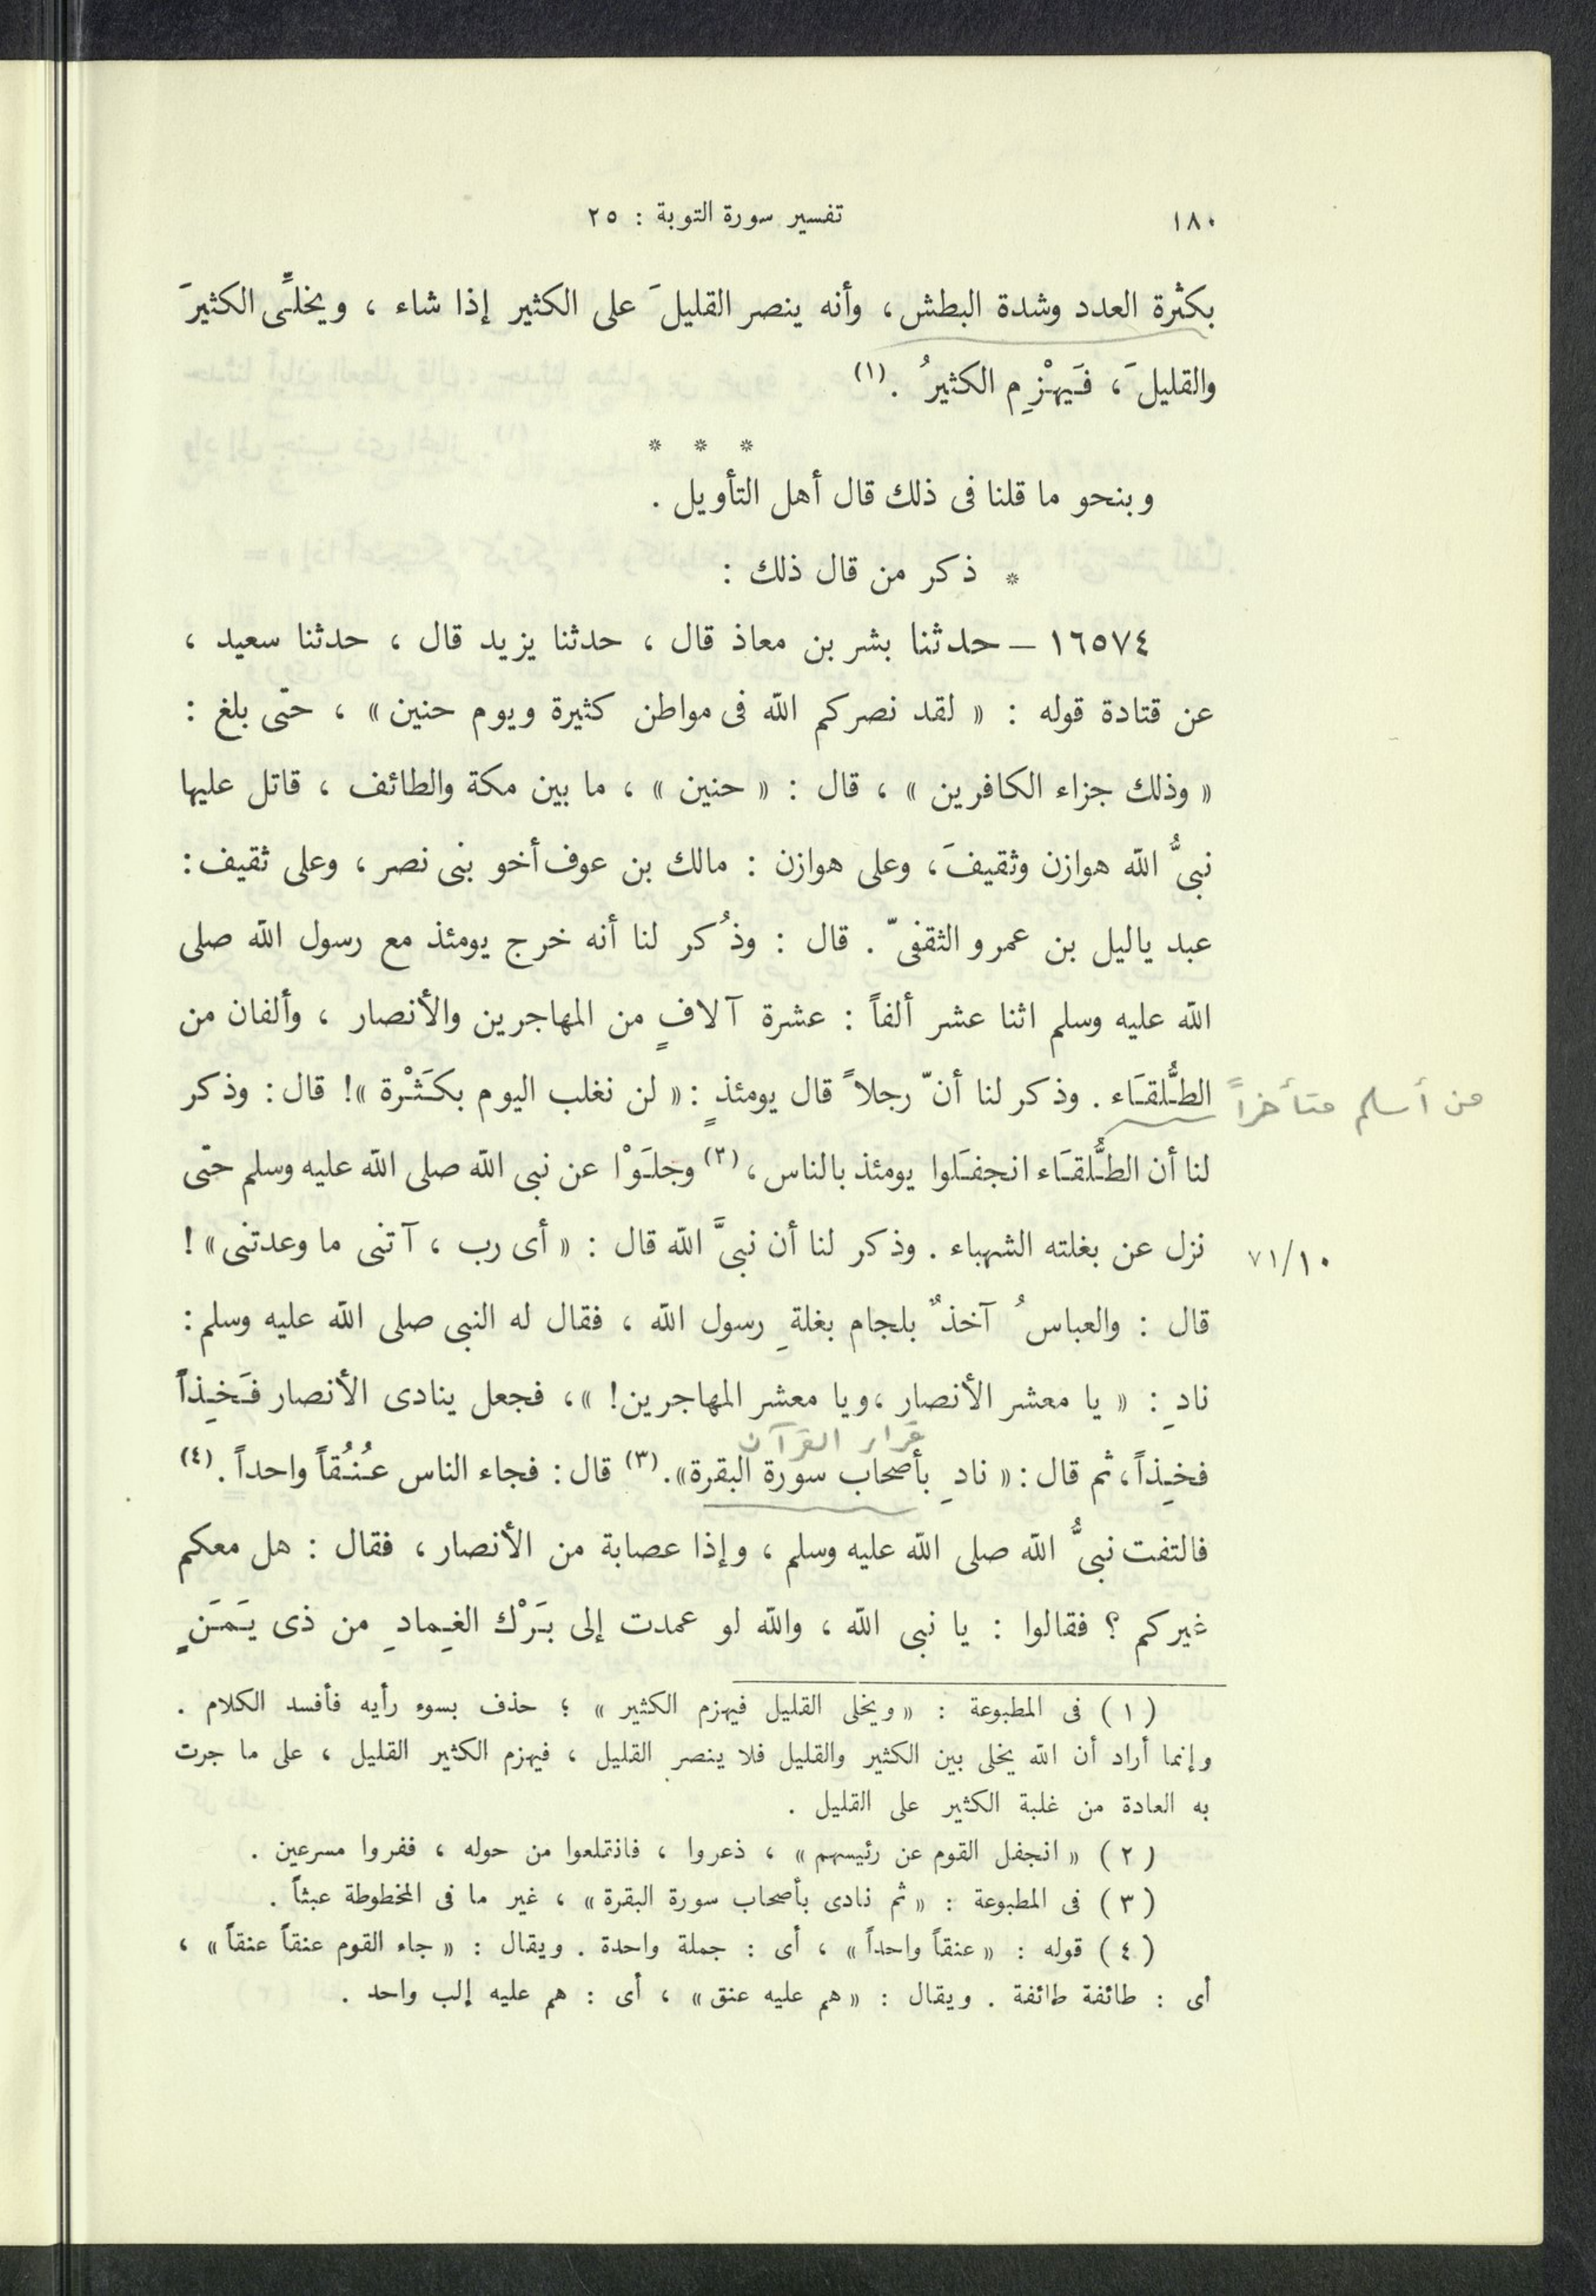 ١٨٠ تفسير سورة التوبة : ٢٥
بكثرة العدد وشدة البطش، وأنه ينصر القليلَ على الكثير إذا شاء ، ويخلِّى الكثيرَ
والقليلَ، فَيهْزِم الكثيرُ . (١)
* * *
وبنحو ما قلنا فى ذلك قال أهل التأويل .
* ذكر من قال ذلك :
١٦٥٧٤ – حدثنا بشر بن معاذ قال ، حدثنا يزيد قال ، حدثنا سعيد ،
عن قتادة قوله : « لقد نصركم الله فى مواطن كثيرة ويوم حنين » ، حتى بلغ :
« وذلك جزاء الكافرين » ، قال : « حنين » ، ما بين مكة والطائف ، قاتل عليها
نبىُّ الله هوازن وثقيفَ، وعلى هوازن : مالك بن عوف أخو بنى نصر ، وعلى ثقيف:
عبد ياليل بن عمرو الثقفىّ . قال : وذُكر لنا أنه خرج يومئذ مع رسول الله صلى
الله عليه وسلم اثنا عشر ألفاً : عشرة آلافٍ من المهاجرين والأنصار ، وألفان من
الطُّلقَاء . وذكر لنا أنّ رجلاً قال يومئذٍ : « لن نغلب اليوم بكَثْرة »! قال : وذكر
من أسلم متأخراً
لنا أن الطُّلقَاء انجفَلوا يومئذ بالناس، (٢) وجلَوْا عن نبى الله صلى الله عليه وسلم حتى
نزل عن بغلته الشهباء . وذكر لنا أن نبىَّ الله قال : « أى رب ، آتنى ما وعدتنى » !
٧١/١٠
قال : والعباسُ آخذٌ بلجام بغلةِ رسول الله ، فقال له النبى صلى الله عليه وسلم :
نادِ : « يا معشر الأنصار ، ويا معشر المهاجرين! » ، فجعل ينادى الأنصار فَخِذاً
القرآن
فخِذاً، ثم قال : « نادِ بأصحاب سورة البقرة». (٣) قال : فجاء الناس عُنُقاً واحداً . (٤)
فالتفت نبىُّ الله صلى الله عليه وسلم ، وإذا عصابة من الأنصار ، فقال : هل معكم
غيركم ؟ فقالوا : يا نبى الله ، والله لو عمدت إلى بَرْك الغِمادِ من ذى يَمَنٍ
( ١ ) فى المطبوعة : « ويخلى القليل فيهزم الكثير » ؛ حذف بسوء رأيه فأفسد الكلام .
وإنما أراد أن الله يخلى بين الكثير والقليل فلا ينصر القليل ، فيهزم الكثير القليل ، على ما جرت
به العادة من غلبة الكثير على القليل .
( ٢ ) « انجفل القوم عن رئيسهم » ، ذعروا ، فانقلعوا من حوله ، ففروا مسرعين .
( ٣ ) فى المطبوعة : « ثم نادى بأصحاب سورة البقرة » ، غير ما فى المخطوطة عبثاً .
( ٤ ) قوله : « عنقاً واحداً » ، أى : جملة واحدة . ويقال : « جاء القوم عنقاً عنقاً » ،
أى : طائفة طائفة . ويقال : « هم عليه عنق » ، أى : هم عليه إلب واحد .